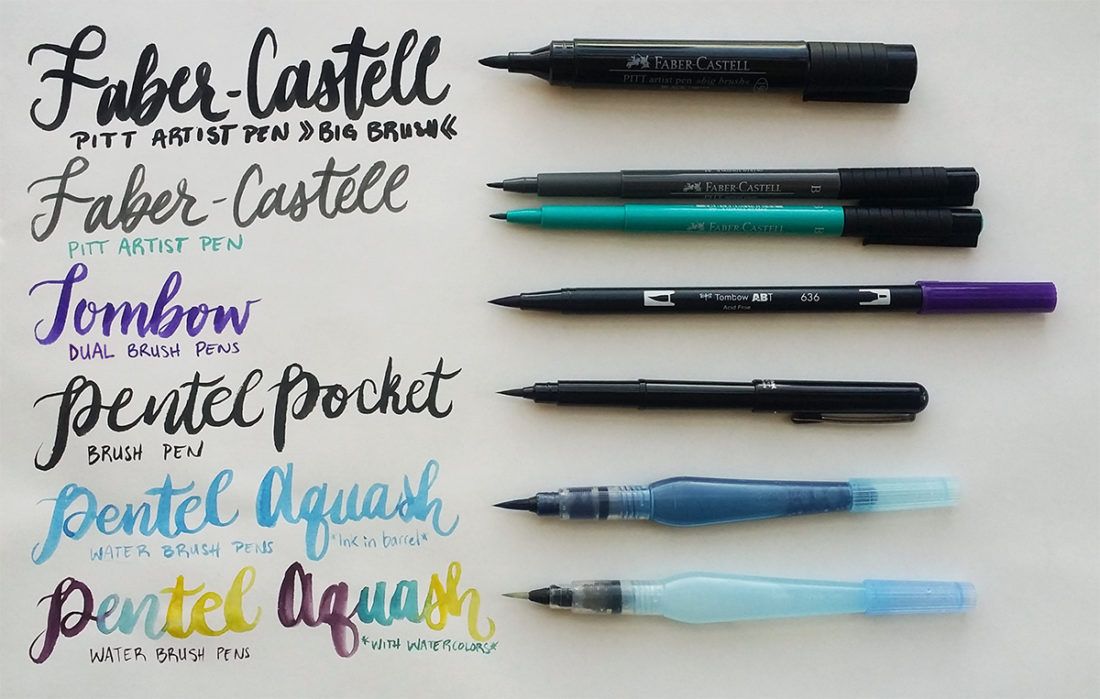 Faber-Castell
PITT ARTIST PEN »BIG BRUSH«
FABER-CASTELL
PITT artist pen »big brush«
Faber-Castell
PITT ARTIST PEN
FABER-CASTELL B
FABER-CASTELL B
Tombow
DUAL BRUSH PENS
Tombow ABT 636
Acid Free
Pentel Pocket
BRUSH PEN
Pentel Aquash
WATER BRUSH PENS *Ink in barrel*
Pentel Aquash
WATER BRUSH PENS *WITH WATERCOLORS*